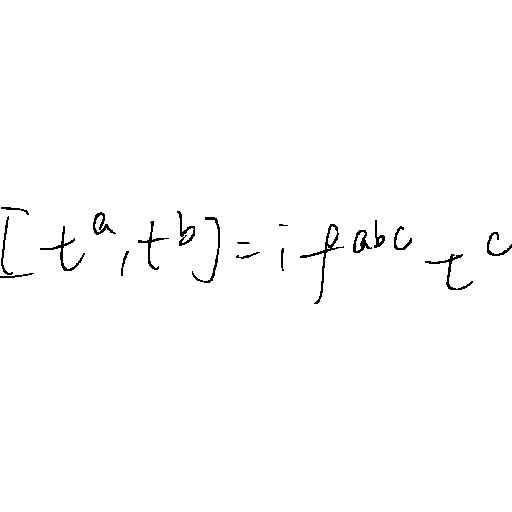 [t^a, t^b] = i f^{abc} t^c